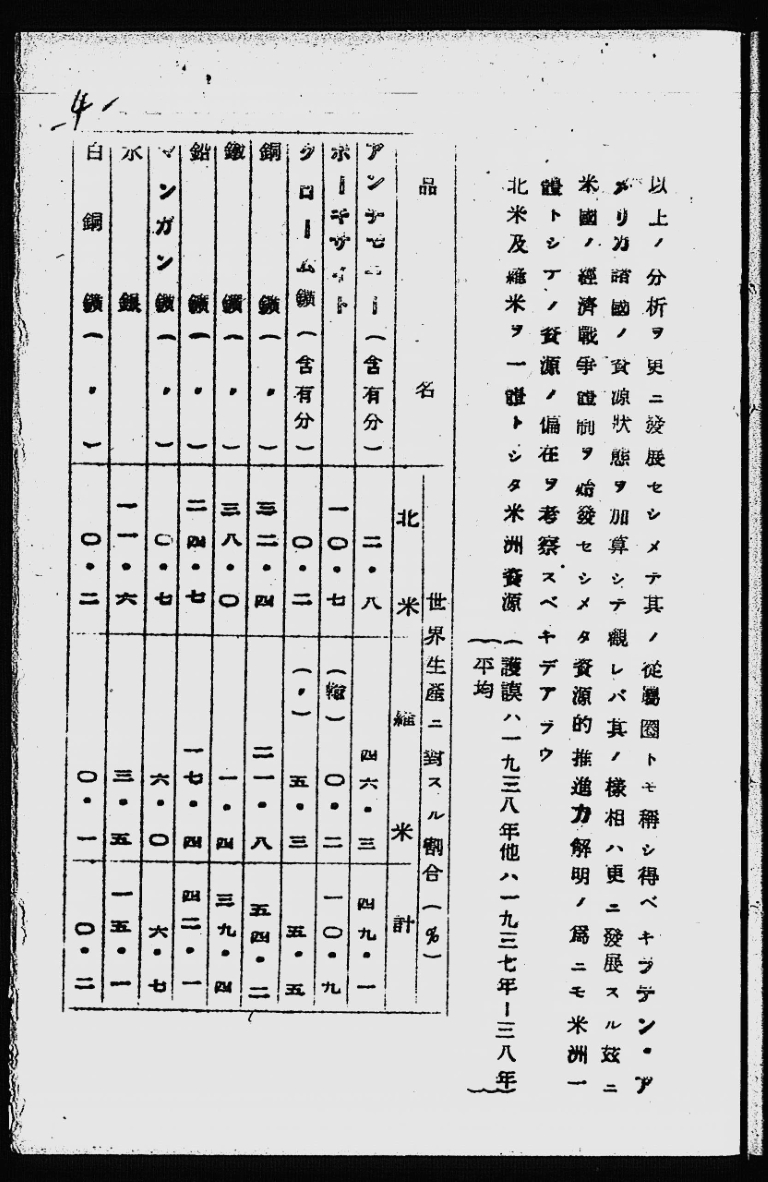 以上ノ分析ヲ更ニ發展セシメテ其ノ從屬圈トモ稱シ得ベキラテン・ア
メリカ諸國ノ資源狀態ヲ加算シテ觀レバ其ノ樣相ハ更ニ發展スル茲ニ
米國ノ經濟戰爭體制ヲ始發セシメタ資源的推進力解明ノ爲ニモ米洲一
體トシテノ資源ノ偏在ヲ考察スベキデアラウ
北米及羅米ヲ一體トシタ米洲資源（護謨ハ一九三八年他ハ一九三七年ー三八年
平均）
品名 世界生產ニ對スル割合（％）
北米 羅米 計
アンチモニー（含有分） 二・八 四六・三 四九・一
ボーキサイト 一〇・七 〇・二 一〇・九
クローム鑛（含有分） 〇・二 （〃） 五・三 五・五
銅鑛（〃） 三二・四 二一・八 五四・二
鐵鑛（〃） 三八・〇 一・四 三九・四
鉛鑛（〃） 二四・七 一七・四 四二・一
マンガン鑛（〃） 〇・七 六・〇 六・七
水銀 一一・六 三・五 一五・一
白銅鑛（〃） 〇・二 〇・一 〇・二
4